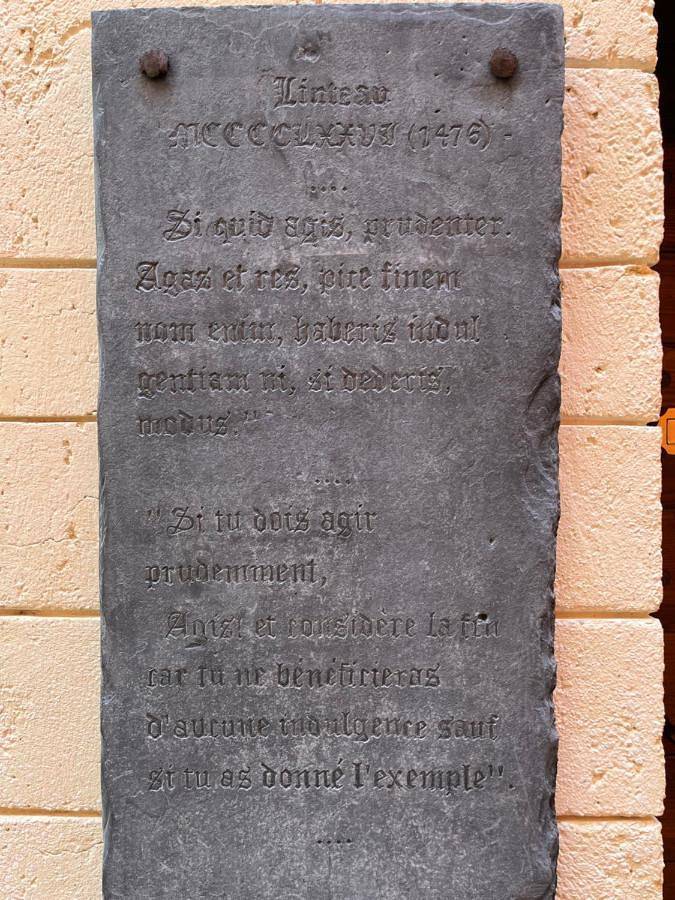 Linteau
MCCCCLXXVI (1476)
....
Si quid agis, prudenter.
Agas et res, pice finem
nom enim, haberis indul
gentiam ni, si dederis,
modus."
....
"Si tu dois agir
prudemment,
Agist et considère la fin
car tu ne bénéficieras
d'aucune indulgence sauf
si tu as donné l'exemple".
....